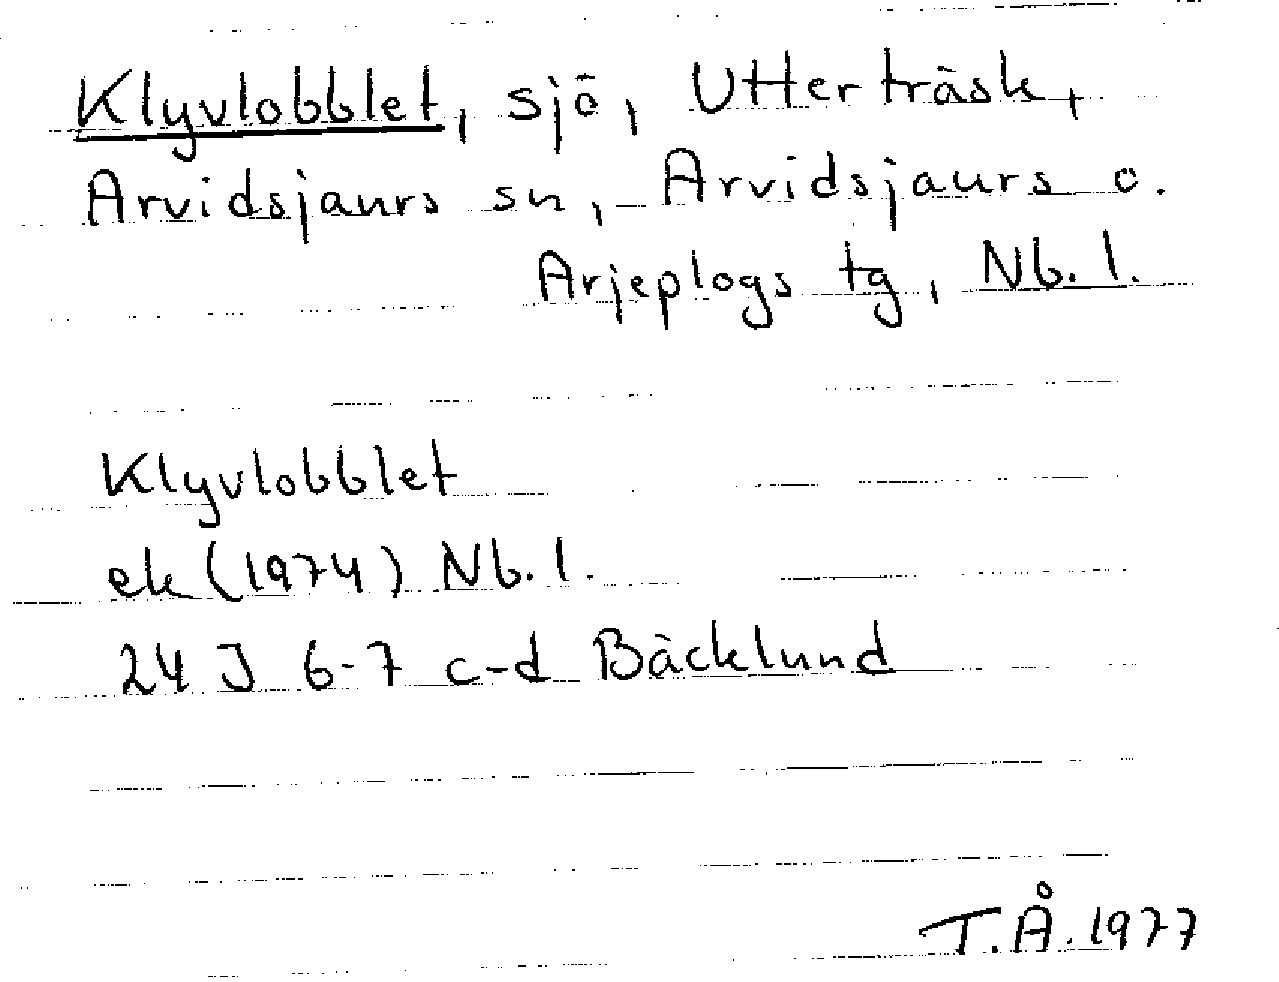 Klyvlobblet, sjö, Utterträsk,
Arvidsjaurs sn, Arvidsjaurs o.
Arjeplogs tg, Nb. l.
Klyvlobblet
ek (1974) Nb. l.
24 J 6-7 c-d Bäcklund
T.Å. 1977